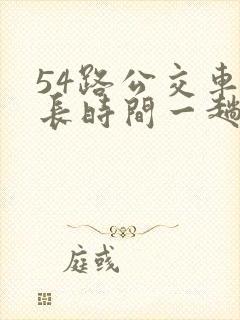 54路公交車
長時間一趟
庭彧